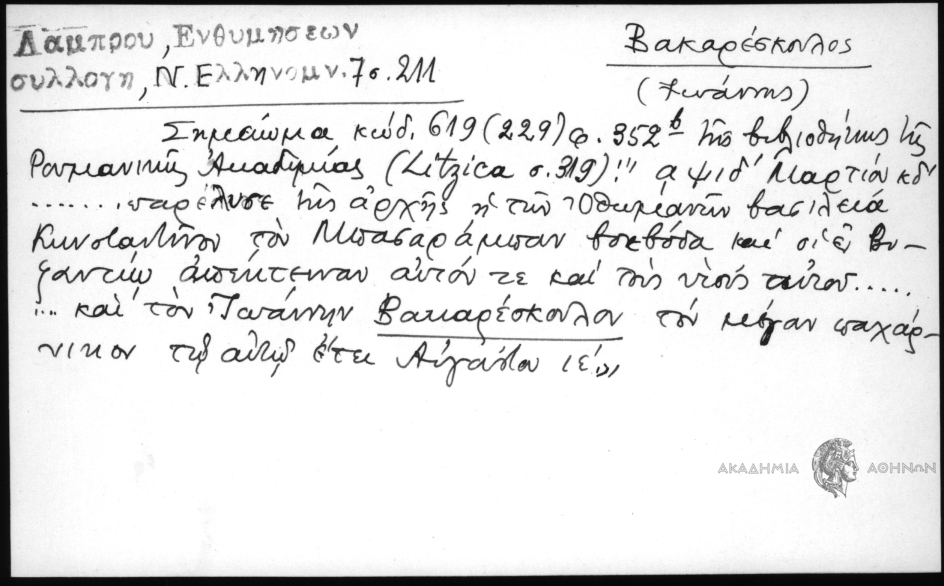 Λάμπρου, Ενθυμήσεων
συλλογή, Ν. Ελληνομν. 7 σ. 211
Βακαρέσκουλος
(Ἰωάννης)
Σημείωμα κώδ. 619 (229) φ. 352β τῆς βιβλιοθήκης τῆς
Ρουμανικῆς Ἀκαδημίας (Litzica σ. 319) !! αψιδ' Μαρτίου κδ'
....... παρέλυσε τῆς ἀρχῆς ἡ τῶν Ὀθωμανῶν βασιλεία
Κωνσταντῖνον τὸν Μπασαράμπαν βοεβόδα καὶ οἱ ἐν Βυ-
ζαντίῳ ἀπέκτειναν αὐτόν τε καὶ τοὺς υἱοὺς αὐτοῦ.....
... καὶ τὸν Ἰωάννην Βακαρέσκουλον τὸν μέγαν παχάρ-
νικον τῷ αὐτῷ ἔτει Αὐγούστου ιέ,,
ΑΚΑΔΗΜΙΑ ΑΘΗΝΩΝ